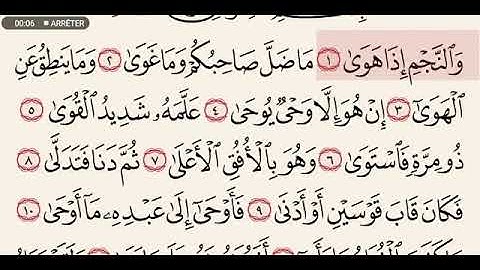 00:06 ■ ARRÊTER
وَٱلنَّجْمِ إِذَا هَوَىٰ ١ مَا ضَلَّ صَاحِبُكُمْ وَمَا غَوَىٰ ٢ وَمَا يَنطِقُ عَنِ
ٱلْهَوَىٰٓ ٣ إِنْ هُوَ إِلَّا وَحْىٌ يُوحَىٰ ٤ عَلَّمَهُۥ شَدِيدُ ٱلْقُوَىٰ ٥
ذُو مِرَّةٍ فَٱسْتَوَىٰ ٦ وَهُوَ بِٱلْأُفُقِ ٱلْأَعْلَىٰ ٧ ثُمَّ دَنَا فَتَدَلَّىٰ ٨
فَكَانَ قَابَ قَوْسَيْنِ أَوْ أَدْنَىٰ ٩ فَأَوْحَىٰٓ إِلَىٰ عَبْدِهِۦ مَآ أَوْحَىٰ ١٠